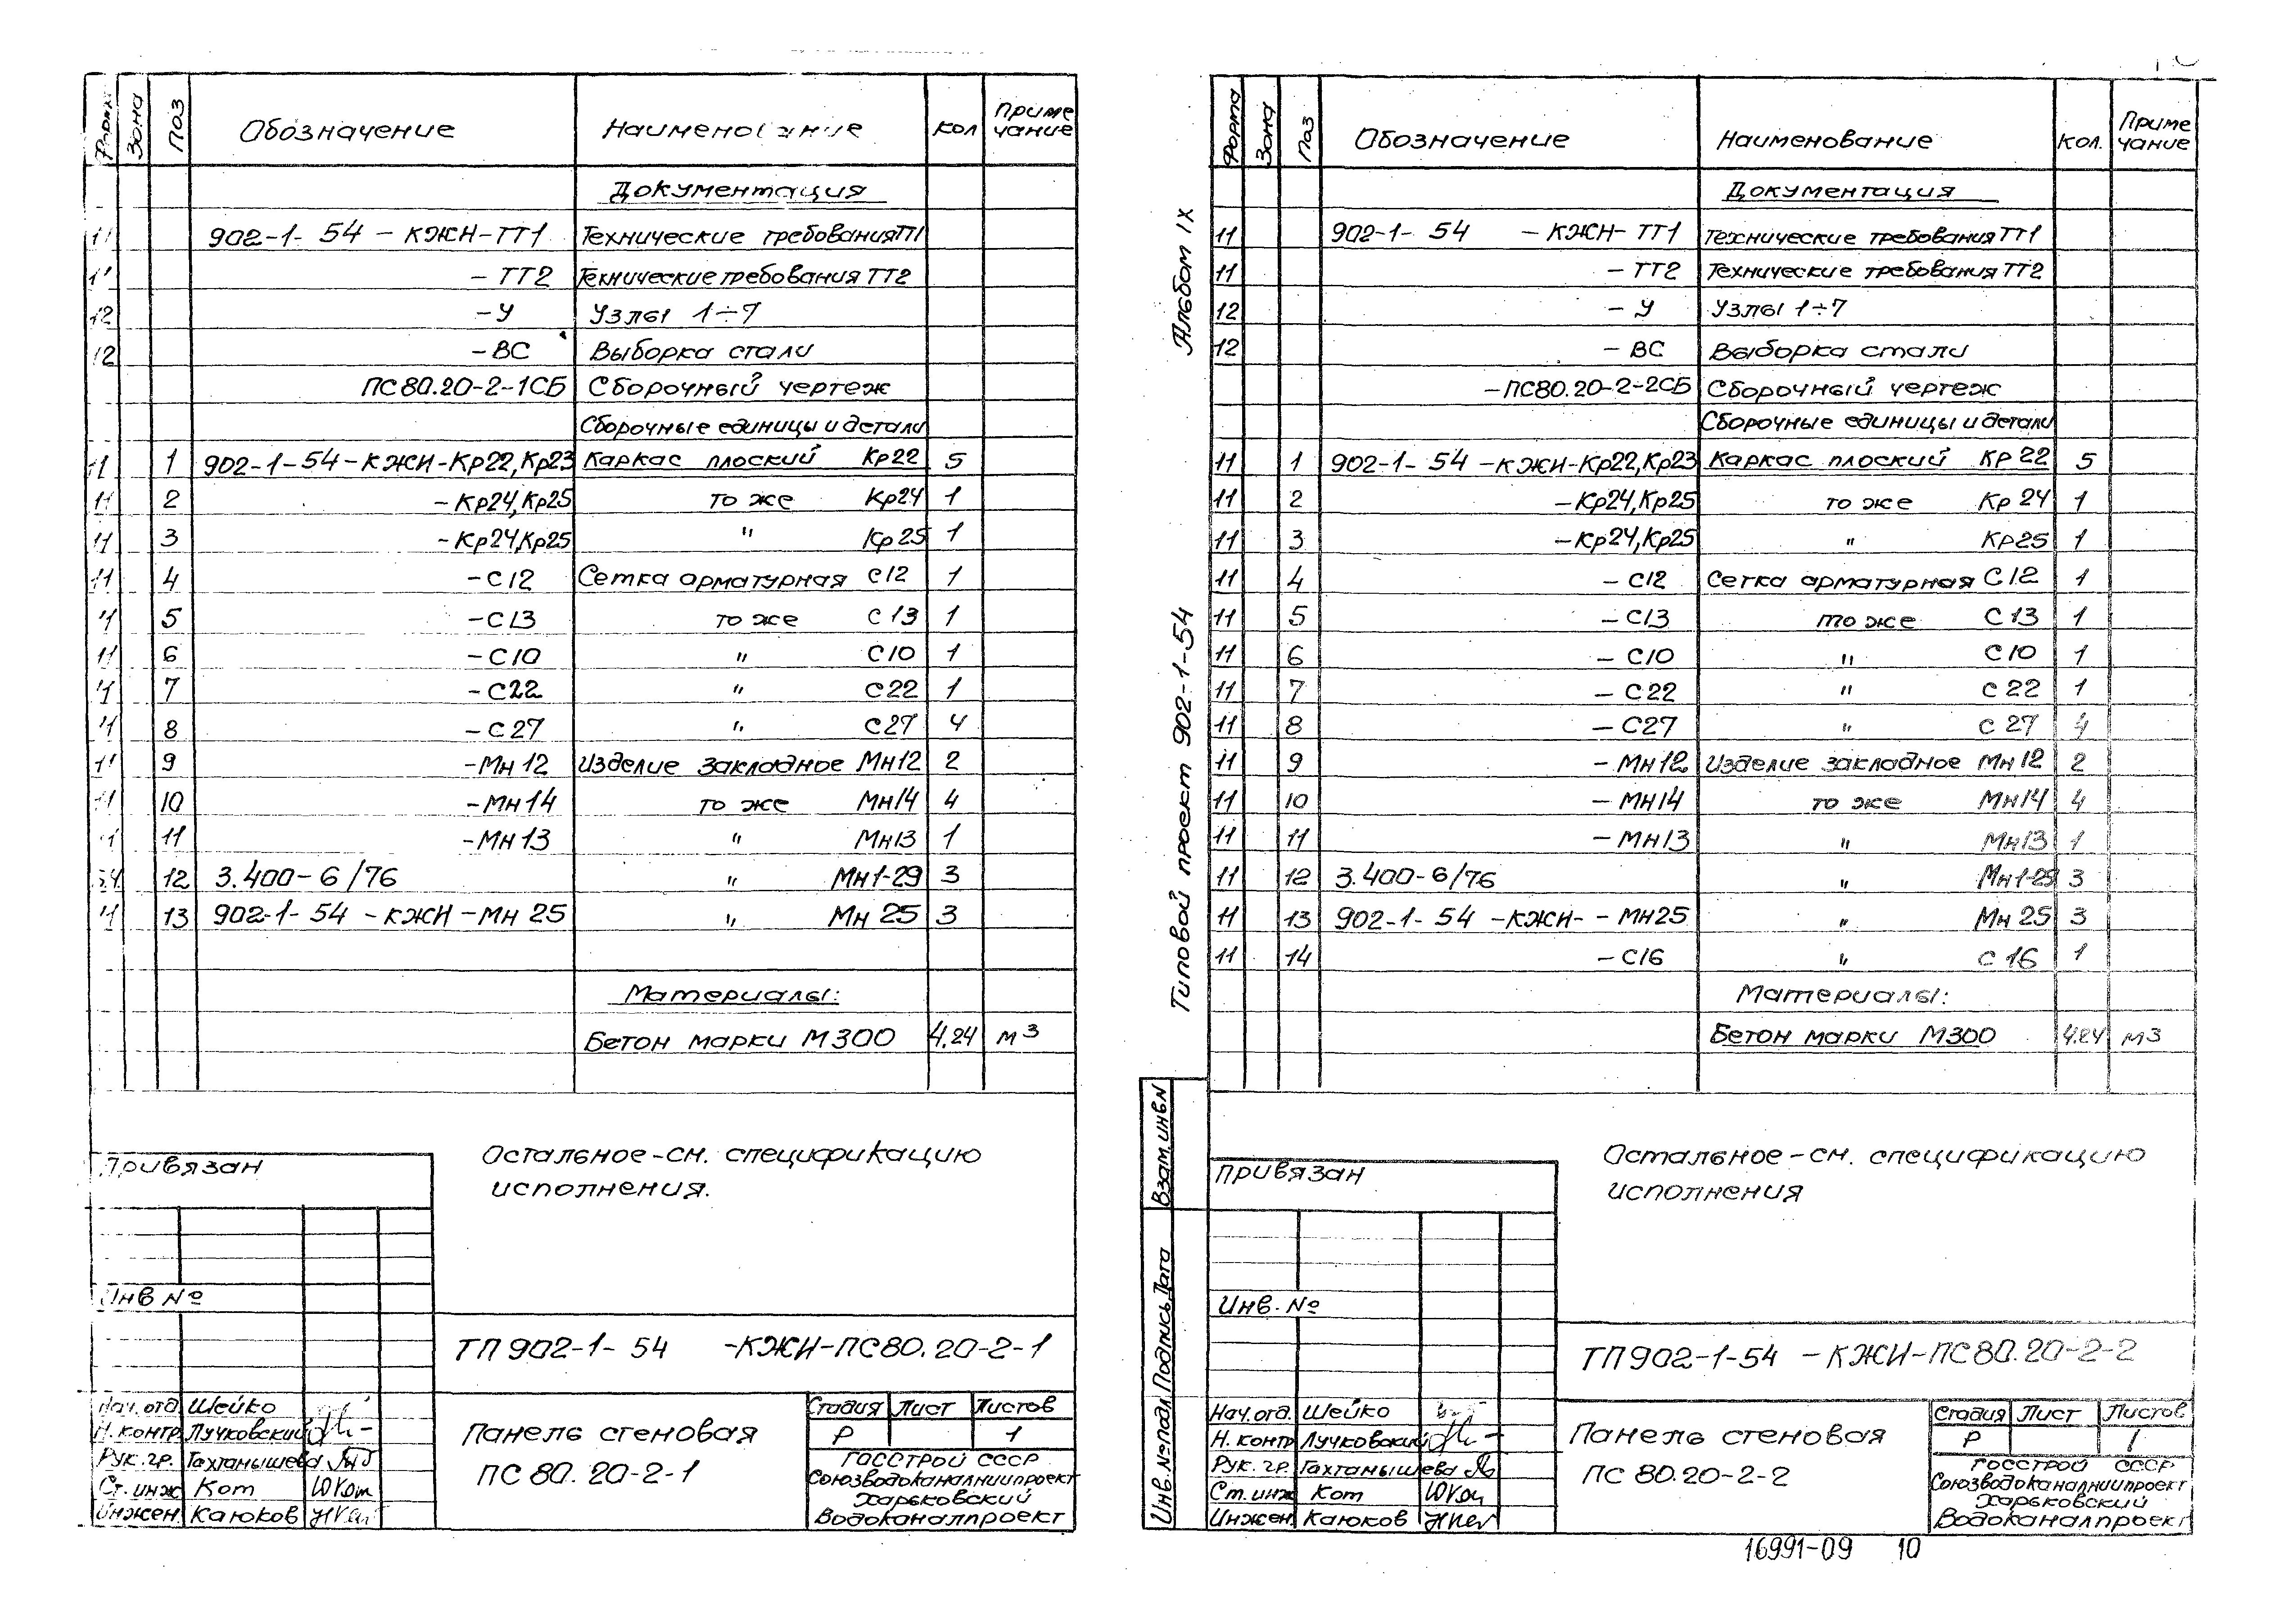 Зона
Поз
Обозначение
Наименование
Кол
Приме
чание
Документация
902-1-54-КЖИ-ТТ1 Технические требования ТТ1
-ТТ2 Технические требования ТТ2
12 -У Узлы 1÷7
12 -ВС Выборка стали
ПС80.20-2-1СБ Сборочный чертеж
Сборочные единицы и детали
11 1 902-1-54-КЖИ-Кр22,Кр23 Каркас плоский Кр22 5
11 2 -Кр24,Кр25 то же Кр24 1
11 3 -Кр24,Кр25 " Кр25 1
11 4 -С12 Сетка арматурная С12 1
11 5 -С13 то же С13 1
11 6 -С10 " С10 1
11 7 -С22 " С22 1
11 8 -С27 " С27 4
11 9 -Мн12 Изделие закладное Мн12 2
11 10 -Мн14 то же Мн14 4
11 -Мн13 " Мн13 1
12 3.400-6/76 " Мн1-29 3
11 13 902-1-54-КЖИ-Мн25 " Мн25 3
Материалы:
Бетон марки М300 4.24 м3
Остальное-см. спецификацию
исполнения.
Привязан
Инв №
ТП902-1-54 -КЖИ-ПС80.20-2-1
Нач.отд. Шейко
Н.контр Лучковский
Рук.гр. Тахтамышева
Ст.инж Кот
Инжен. Каюков
Панель стеновая
ПС 80.20-2-1
Стадия Лист Листов
Р 1
ГОССТРОЙ СССР
Союзводоканалниипроект
Харьковский
Водоканалпроект
Альбом IX
Типовой проект 902-1-54
Взам.инвN
Инв.№подл. Подпись, Дата
Форма
Зона
Поз
Обозначение
Наименование
Кол.
Приме
чание
Документация
11 902-1-54 -КЖИ-ТТ1 Технические требования ТТ1
11 -ТТ2 Технические требования ТТ2
12 -У Узлы 1÷7
12 -ВС Выборка стали
-ПС80.20-2-2СБ Сборочный чертеж
Сборочные единицы и детали
11 1 902-1-54-КЖИ-Кр22,Кр23 Каркас плоский Кр22 5
11 2 -Кр24,Кр25 то же Кр24 1
11 3 -Кр24,Кр25 " Кр25 1
11 4 -С12 Сетка арматурная С12 1
11 5 -С13 то же С13 1
11 6 -С10 " С10 1
11 7 -С22 " С22 1
11 8 -С27 " С27 4
11 9 -Мн12 Изделие закладное Мн12 2
11 10 -Мн14 то же Мн14 4
11 11 -Мн13 " Мн13 1
11 12 3.400-6/76 " Мн1-29 3
11 13 902-1-54-КЖИ--Мн25 " Мн25 3
11 14 -С16 " С16 1
Материалы:
Бетон марки М300 4.24 м3
Остальное-см. спецификацию
исполнения
Привязан
Инв. №
ТП902-1-54 -КЖИ-ПС80.20-2-2
Нач.отд. Шейко
Н.контр Лучковский
Рук.гр. Тахтамышева
Ст.инж Кот
Инжен. Каюков
Панель стеновая
ПС 80.20-2-2
Стадия Лист Листов
Р 1
ГОССТРОЙ СССР
Союзводоканалниипроект
Харьковский
Водоканалпроект
16991-09 10